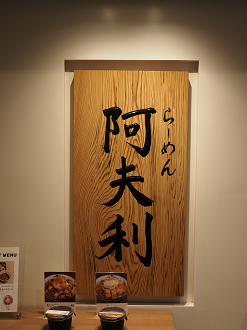 らーめん
阿夫利
MENU